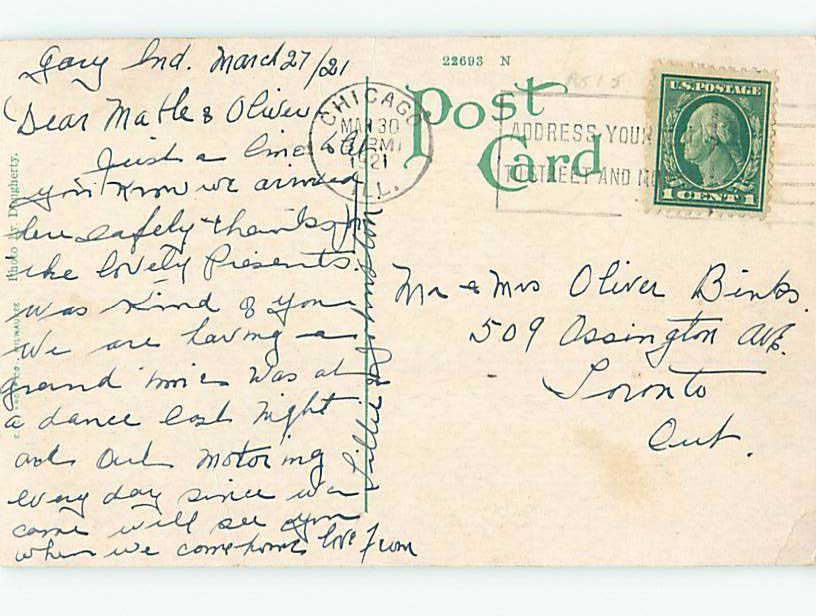 Gary Ind. March 27/21
Dear Mable & Oliver
Just a line to let
you know we arrived
here safely thanks for
the lovely Presents.
was kind of you
We are having a
grand time was at
a dance last night
and out motoring
every day since we
came will see you
when we come home love from
Lillie &
22693 N
Post
Card
CHICAGO
MAR 30
PM
1921
ILL.
ADDRESS YOUR
TO STREET AND
U.S. POSTAGE
1 CENT 1
Mr & Mrs Oliver Binks.
509 Ossington Ave.
Toronto
Ont.
Photo by Dougherty.
MILWAUKEE